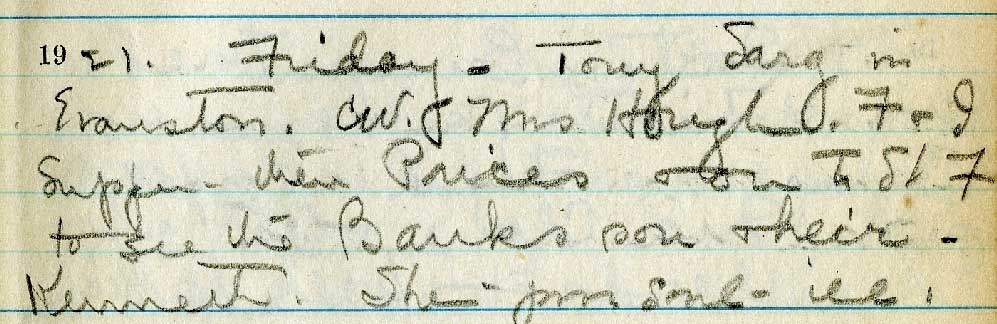 1921. Friday - Tony Sarg in
Evanston. CW. & Mrs Hough. F & I
Supper - then Prices & on to St. F
to see the Banks son & heir -
Kenneth. She - poor soul - ill.